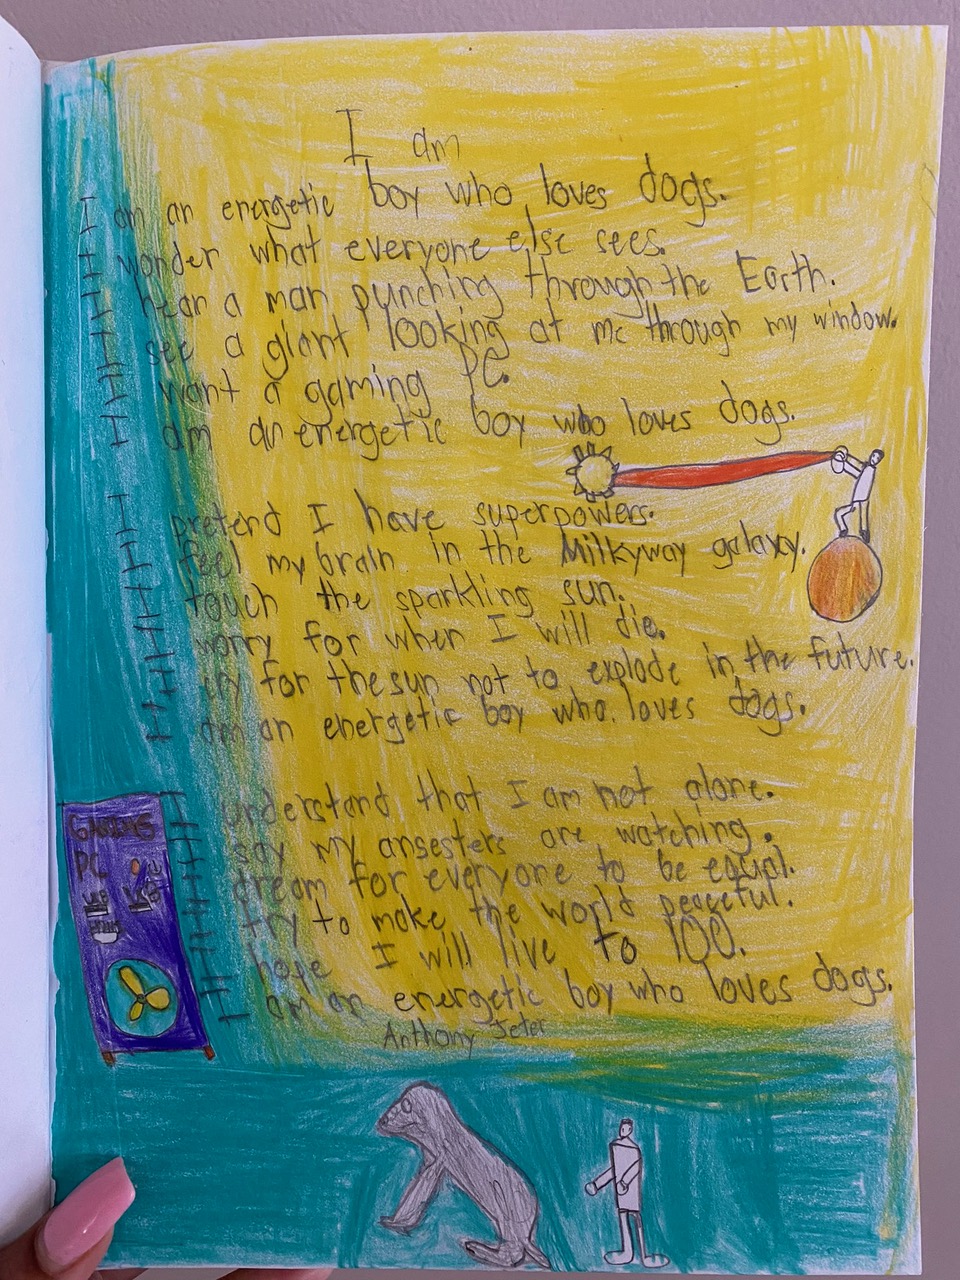 I am
I am an energetic boy who loves dogs.
I wonder what everyone else sees.
I hear a man punching through the Earth.
I see a giant looking at me through my window.
I want a gaming PC.
I am an energetic boy who loves dogs.
I pretend I have superpowers.
I feel my brain in the Milkyway galaxy.
I touch the sparkling sun.
I worry for when I will die.
I cry for the sun not to explode in the future.
I am an energetic boy who loves dogs.
I understand that I am not alone.
I say my ansesters are watching.
I dream for everyone to be equal.
I try to make the world peaceful.
I hope I will live to 100.
I am an energetic boy who loves dogs.
Anthony Jeter
PC